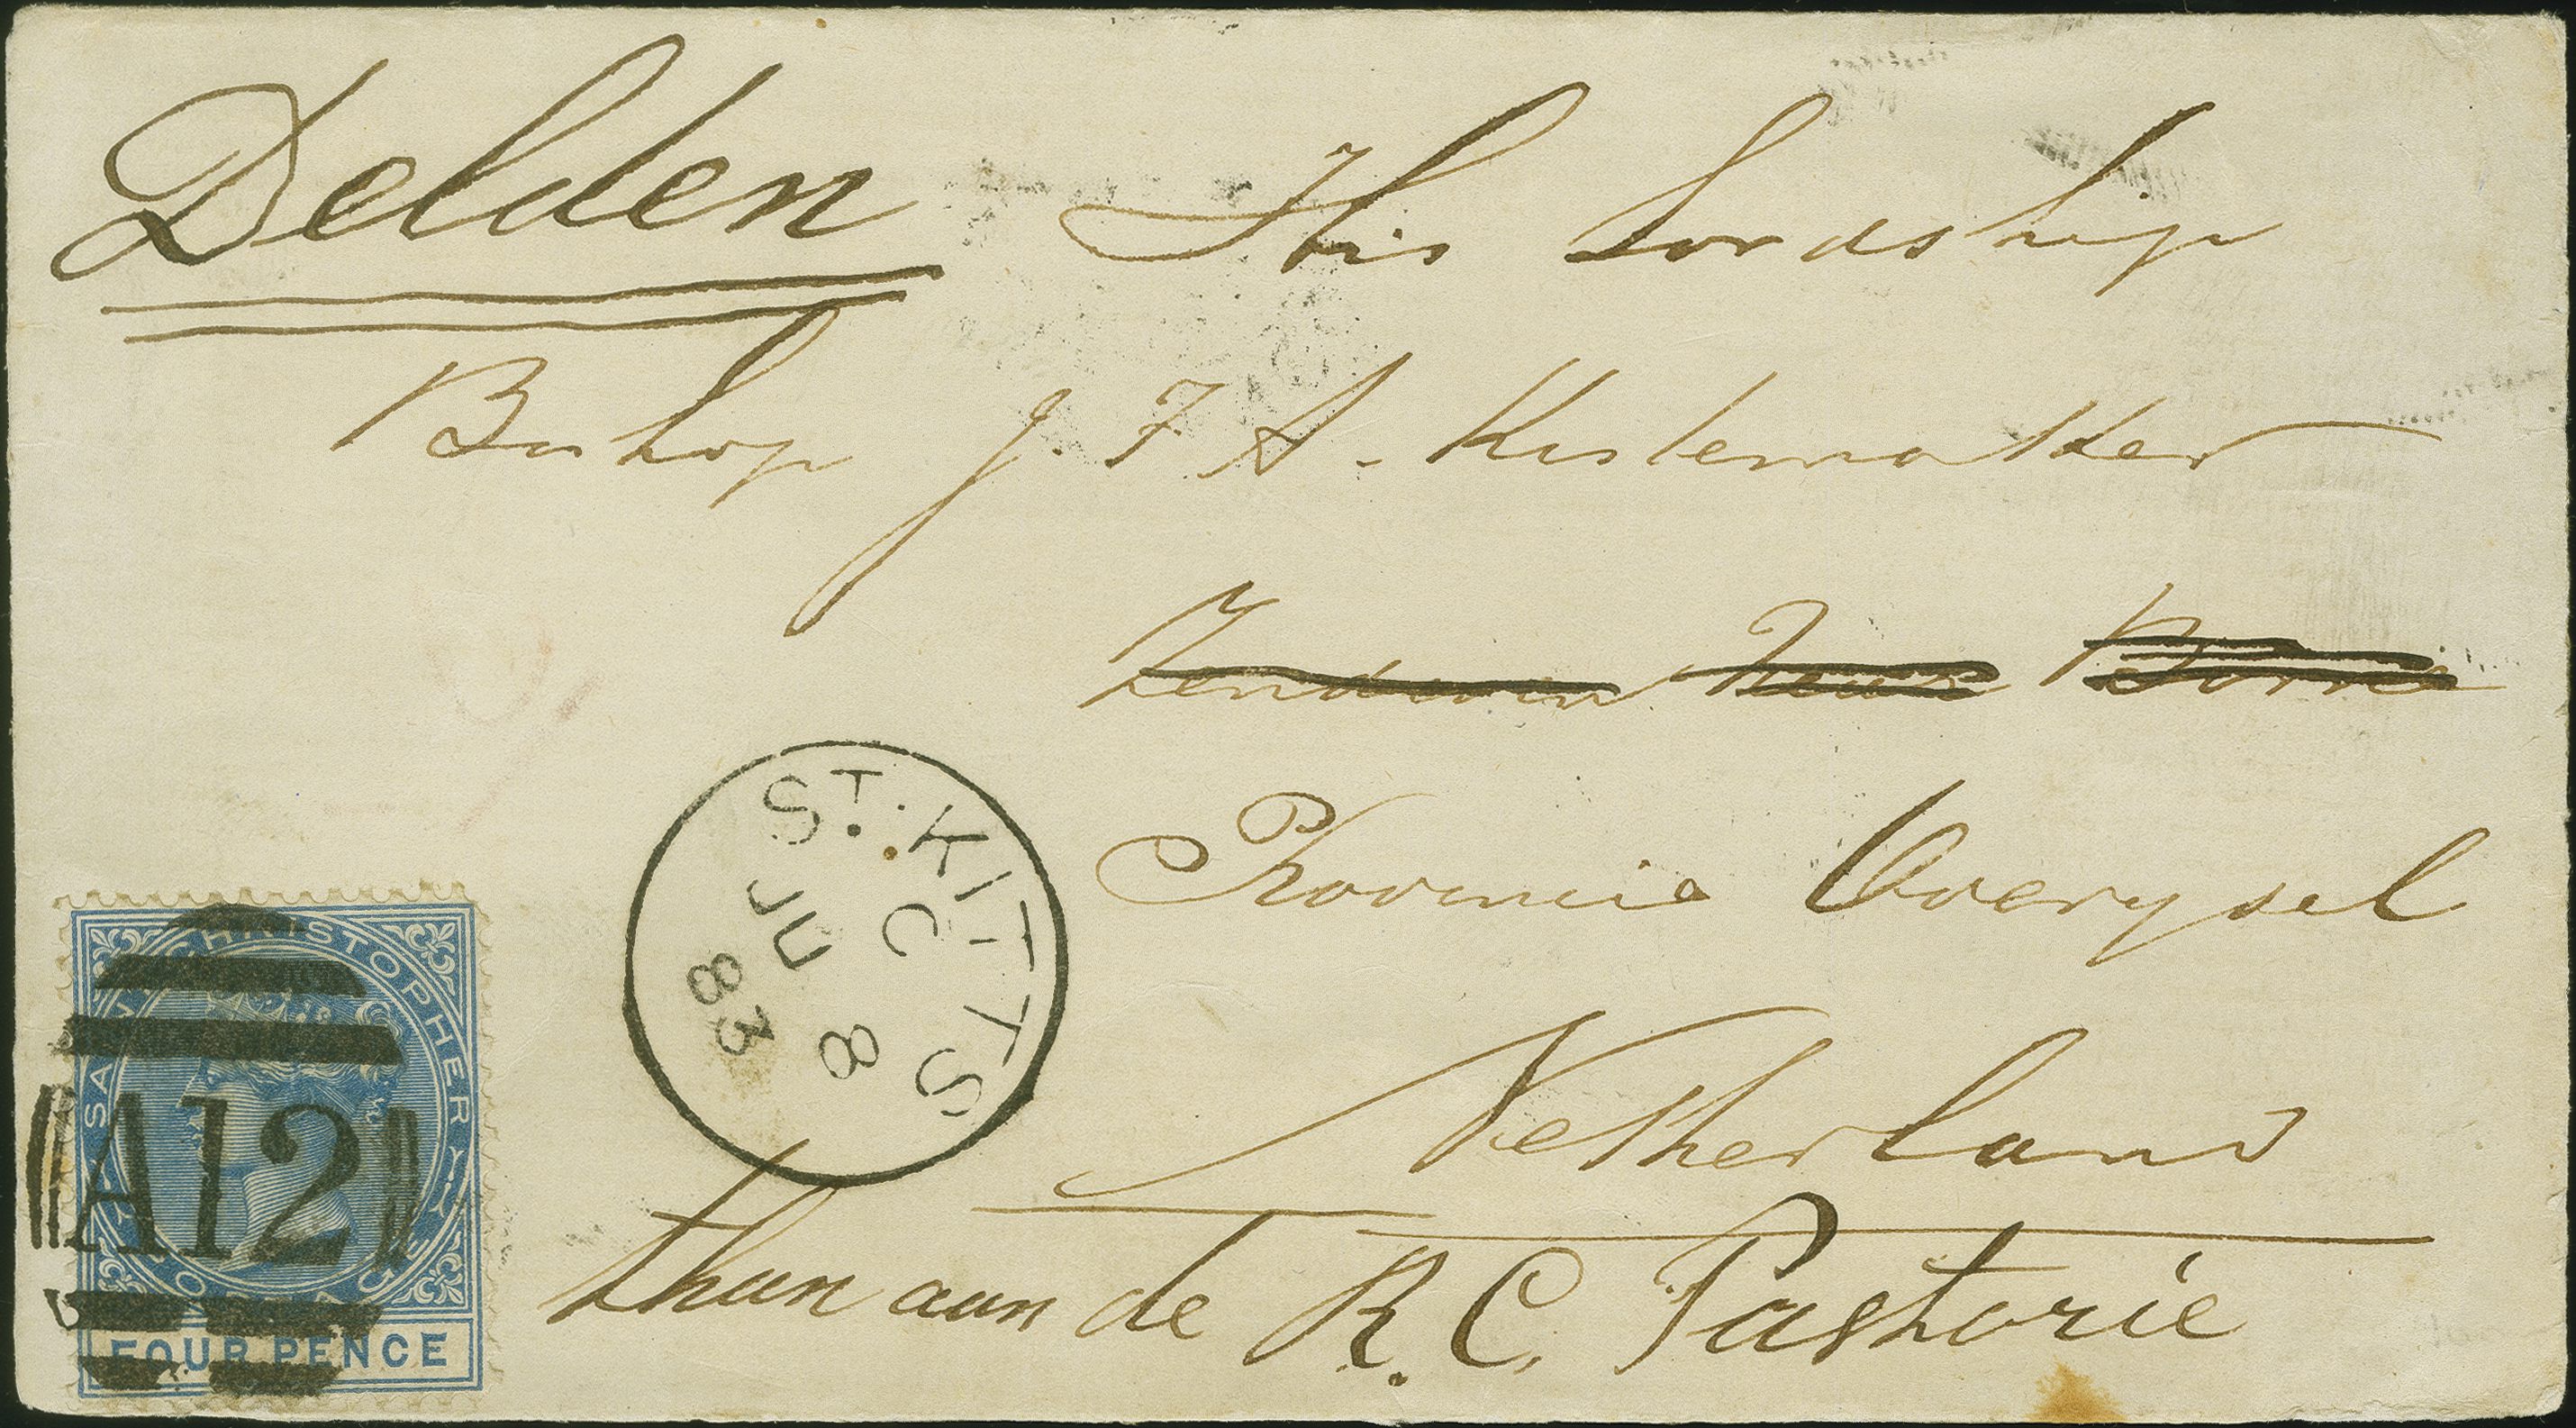 Delden His Lordship
Bishop J. F A. Kistemakker
Zenderen Near Borne
Provincie Overysel
Netherland
thans aan de R. C. Pastorie
ST. KITTS
C
JU 8
83
SAINT CHRISTOPHER
POSTAGE
FOUR PENCE
A12